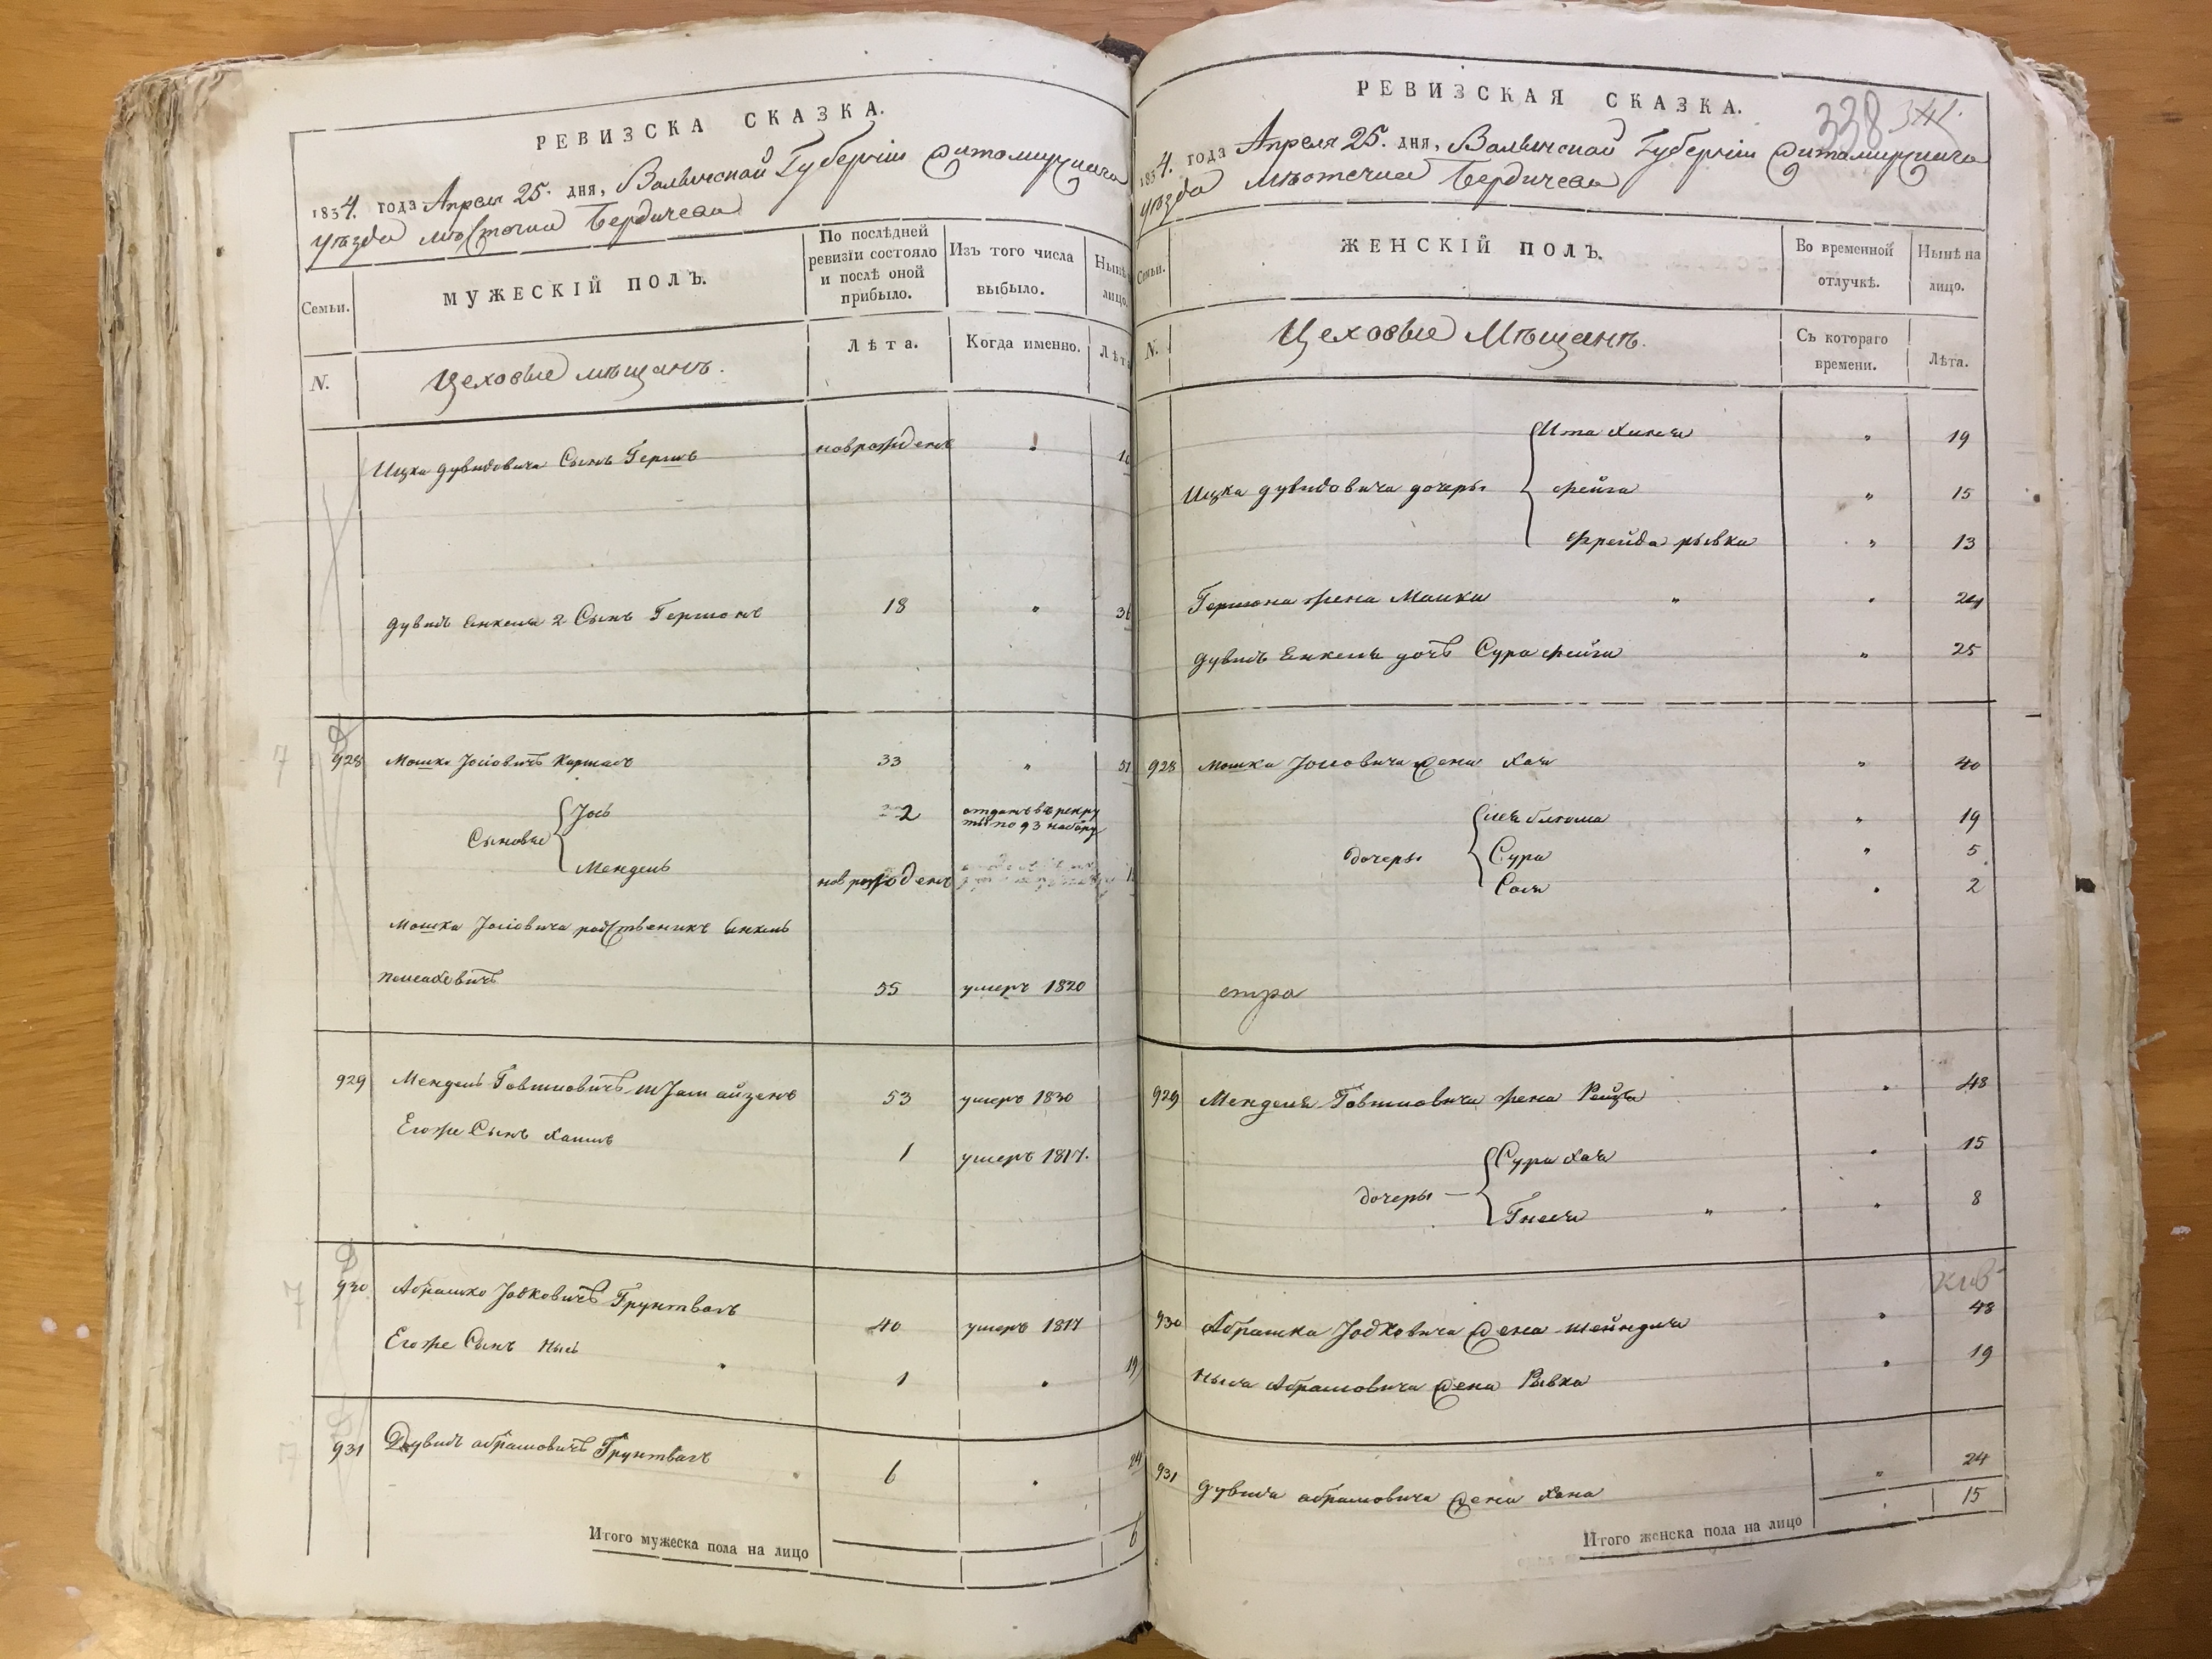 РЕВИЗСКА СКАЗКА.
1834. года Апреля 25. дня, Волынской Губернии Житомирскаго
уѣзда мѣстечка Бердичева
Семьи.
МУЖЕСКІЙ ПОЛЪ.
По послѣдней
ревизіи состояло
и послѣ оной
прибыло.
Изъ того числа
выбыло.
Нынѣ
лицо.
N.
Цеховые мѣщанъ.
Лѣта.
Когда именно.
Лѣта
Ицка Дувидовича Сынъ Гершъ новрожденъ
Дувидъ Енкеля 2 Сынъ Гершонъ 18 " 36
928 Мошко Іосіовичъ 33 " 51
Сыновье
Іось 2 отданъ въ рекру
ты по 93 набору
Мендель новрожденъ
Мошка Іосіовича родственикъ Енкель
Пейсаховичъ 55 умеръ 1820
929 Мендель Говшиовичъ 53 умеръ 1830
Егоже Сынъ Хаимъ 1 умеръ 1817.
7 930 Абрашко Іовковичъ Грунтвагъ 40 умеръ 1817
Егоже Сынъ Нысь " 1 " 19
7 931 Дувидъ Абрамовичъ Грунтвагъ 6 " 24
Итого мужеска пола на лицо 6
РЕВИЗСКАЯ СКАЗКА.
338 341.
1834. года Апреля 25. дня, Волынской Губерніи Житомирскаго
уѣзда Мѣстечка Бердичева
Семьи.
ЖЕНСКІЙ ПОЛЪ.
Во временной
отлучкѣ.
Нынѣ на
лицо.
N.
Цеховые Мѣщанъ.
Съ котораго
времени.
Лѣта.
Ита Химя " 19
Ицка Дувидовича дочеры
Фейга " 15
Фрейда рывка " 13
Гершона жена Мошка " "
Дувидъ Енкеля дочъ Сура Фейга " 25
928 Мошка Іосіовича жена Хая " 40
дочеры
Лея блюма " 19
Сура " 5
Сося " 2
929 Менделя Говшиовича жена Рейзя " 48
дочеры
Сура Хая " 15
Гнеся " " 8
930 Абрашка Іовковича жена шейндля " 48
Ныся Абрамовича жена Рывка " 19
931 Дувида абрамовича жена Хана " 24
Итого женска пола на лицо 15